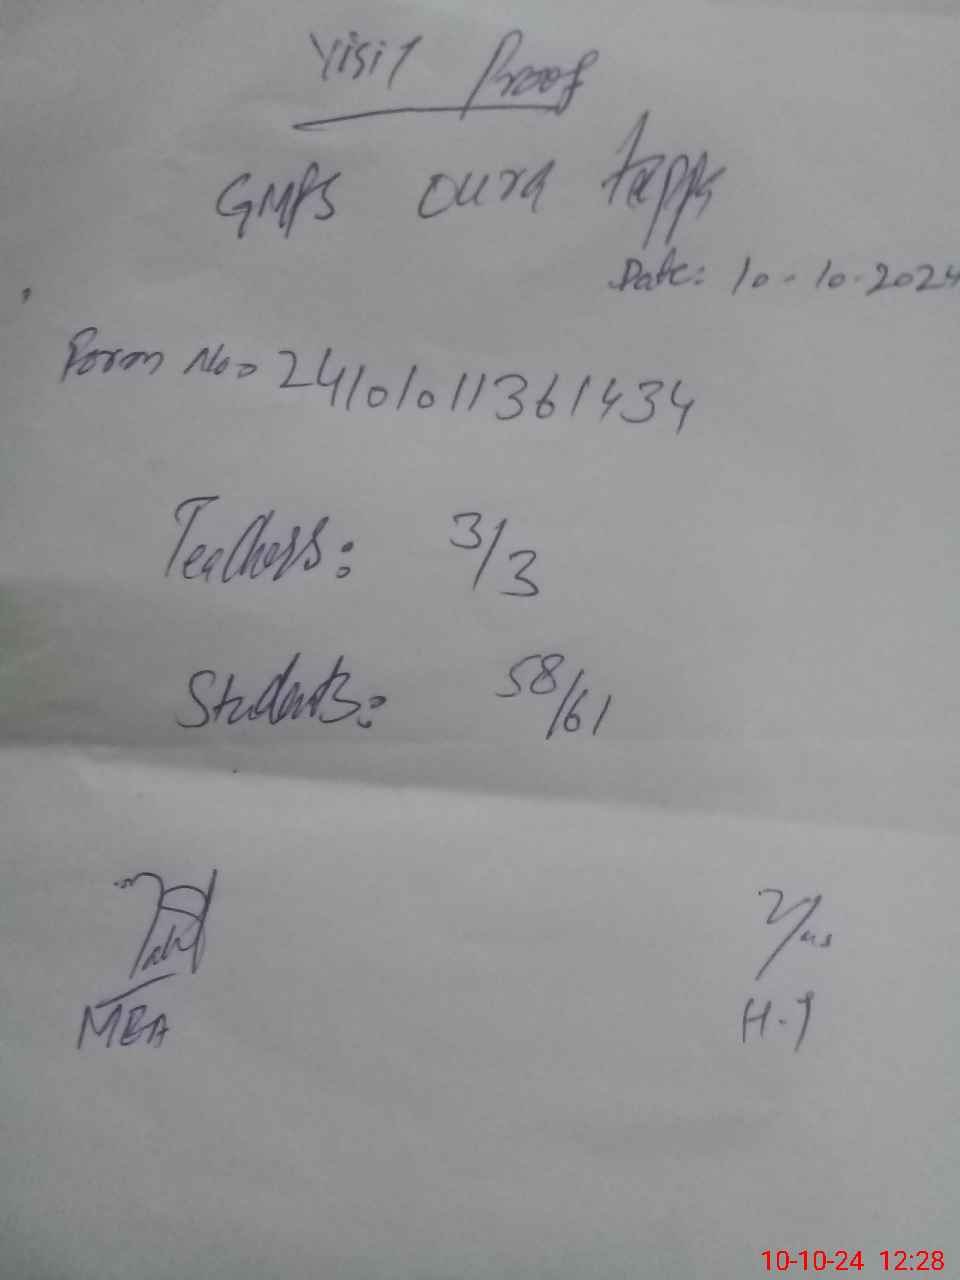 Visit Proof
GMPS Dura Tappa
Date: 10-10-2024
Form No: 24101011361434
Teachers: 3/3
Students: 58/61
MEA
H.T
10-10-24 12:28